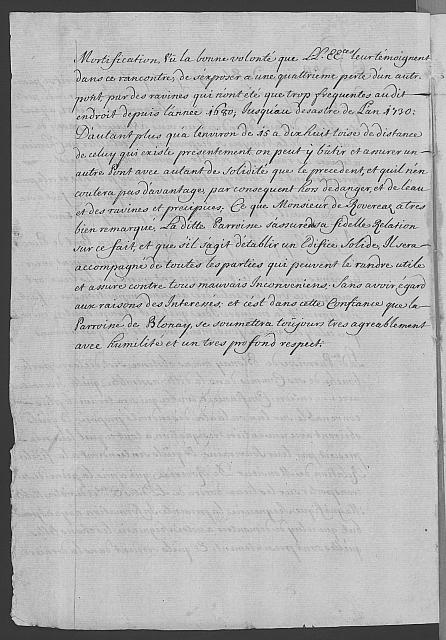 Mortification, Vû la bonne volonté que LL. EE.ces leur témoignent
dans ce rancontre, de s'exposer a une quattrième perte d'un autr.
pont par des ravines qui nont ete que trop frequentes au dit
endroit depuis l'année 1680, Jusqu'au desastre de l'an 1730:
D'autant plus qua l'environ de 15 a dix huit toise de distance
de celuy qui existe presentement on peut y bâtir et assurer un
autre Pont avec autant de Solidité que le precedent, et quil n'en
coutera pas d'avantage, par consequent hors de danger et de l'eau
et des ravines et precipices. Ce que Monsieur de Rovereaz à tres
bien remarque, La ditte Parroine s'assure en sa fidelle Relation
sur ce fait, et que s'il s'agit d'etablir un Edifice Solide, Il sera
accompagné de toutes les parties qui peuvent le randre utile
et assuré contre tous mauvais Inconveniens, Sans avoir egard
aux raisons des Interessés, et c'est dans cette Confiance que la
Parroine de Blonay, se soumettra toujours tres agreablement
avec humilité et un tres profond respect.